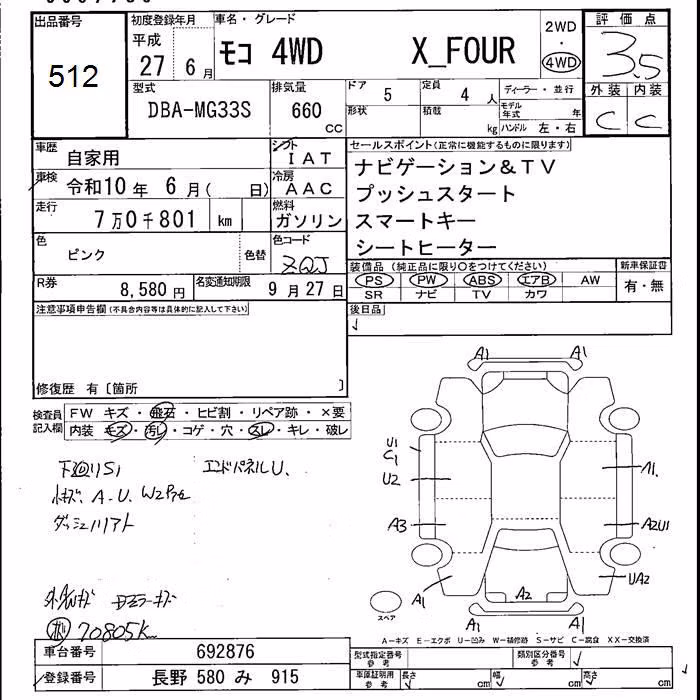 出品番号 初度登録年月 車名・グレード 2WD 評価点
512 平成 27 6月 モコ 4WD X_FOUR ・ 4WD 3.5
型式 排気量 ドア 5 定員 4人 ディーラー・並行 外装 内装
DBA-MG33S 660 cc 形状 積載 kg モデル年式 年 C C
ハンドル 左・右
車歴 自家用 シフト IAT セールスポイント(正常に機能するものに限ります)
車検 令和10年 6月( 日) 冷房 AAC ナビゲーション&TV
プッシュスタート
走行 7万0千801 km 燃料 ガソリン スマートキー
色 ピンク 色替 色コード ZQJ シートヒーター
装備品(純正品に限り○をつけてください) 新車保証書
R券 8,580円 名変通知期限 9月27日 PS PW ABS エアB AW 有・無
SR ナビ TV カワ
注意事項申告欄(不具合内容等は具体的に記入して下さい) 後日品
修復歴 有〔箇所 〕
検査員記入欄 FW キズ・飛石・ヒビ割・リペア跡・×要
内装 キズ・汚レ・コゲ・穴・スレ・キレ・破レ
A1 A1
下廻りS1 エンドパネルU.
U1
C1
U2 A1.
A.U. W2P
A3 A2U1
A1 A2 UA2
スペア A1 A1
70805K
A-キズ E-エクボ U-凹み W-補修跡 S-サビ C-腐食 XX-交換済
車台番号 692876 型式指定番号 参考 類別区分番号 参考
登録番号 長野 580 み 915 車庫証明用 参考 長さ cm 幅 cm 高さ cm